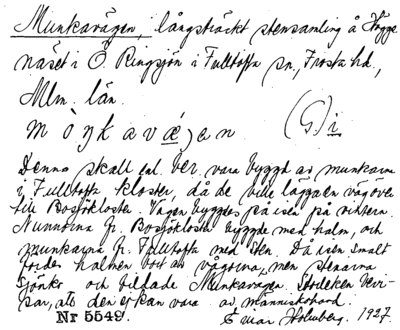 Munkavägen, långsträckt stensamling å Hägge
näset i Ö. Ringsjön i Fulltofta sn, Frosta hd.,
Mlm. län.
m ò ŋ k a v æ̀ j e n (G) i
Denna skall enl. ber. vara byggd av munkarna
i Fulltofta kloster, då de ville lägga en väg över
till Bosjökloster. Vägen byggdes på isen på vintern.
Nunnorna fr. Bosjökloster byggde med halm, och
munkarna fr. Fulltofta med sten. Då isen smalt
fördes halmen bort av vågorna, men stenarna
sjönko och bildade Munkavägen. Storleken
sar, att den ej kan vara av människohand.
Nr 5549. Einar Holmberg. 1927.